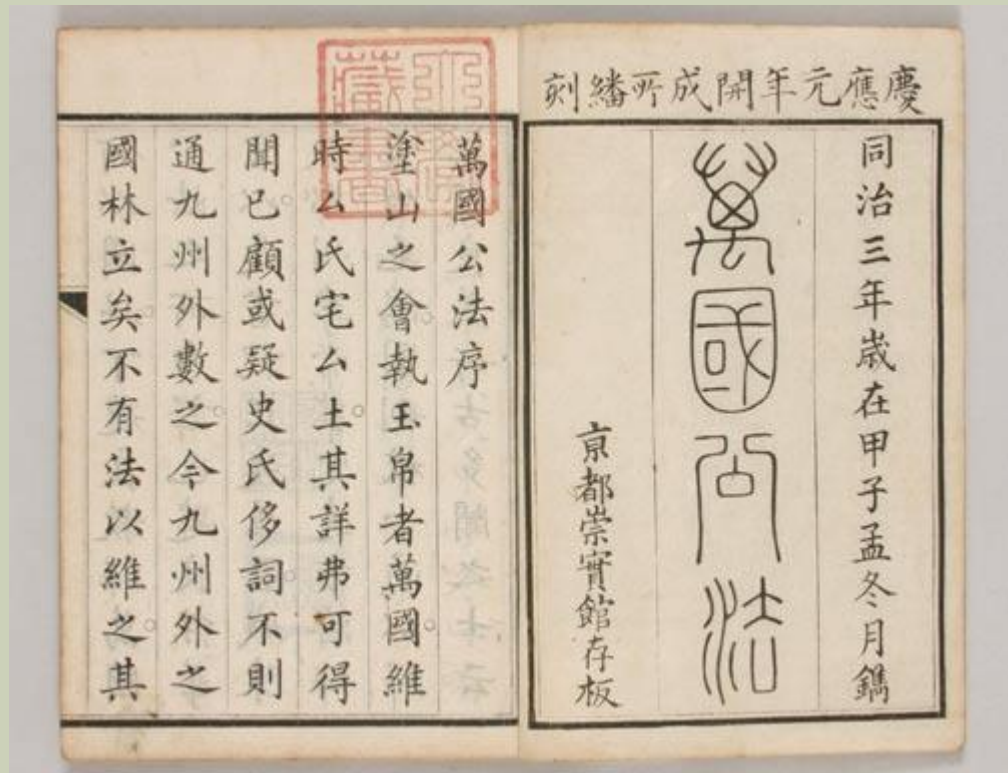 慶應元年開成所繙刻
同治三年歲在甲子孟冬月鐫
萬國公法
京都崇實館存板
萬國公法序
塗山之會執玉帛者萬國維
時厶氏宅厶土其詳弗可得
聞已顧或疑史氏侈詞不則
通九州外數之今九州外之
國林立矣不有法以維之其
藏書